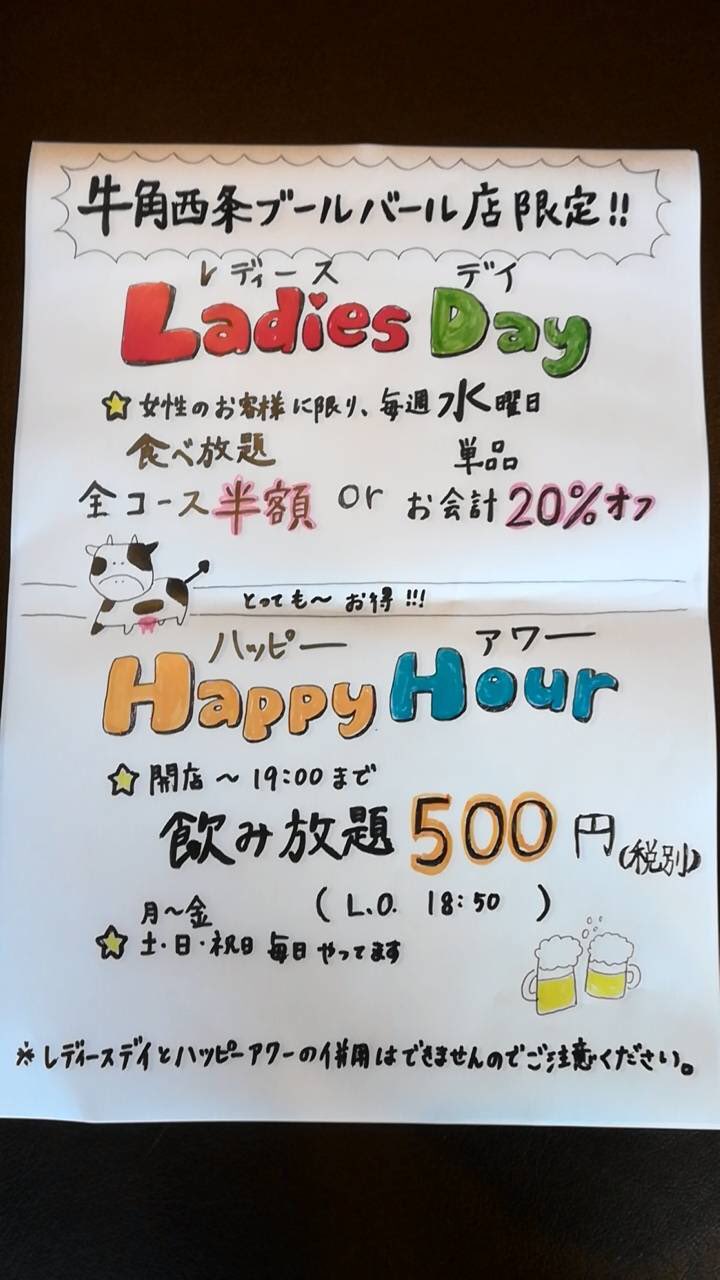 牛角西条ブールバール店限定!!
レディース デイ
Ladies Day
女性のお客様に限り、毎週水曜日
食べ放題 単品
全コース半額 or お会計20%オフ
とっても〜お得!!!
ハッピー アワー
Happy Hour
開店〜19:00まで
飲み放題500円(税別)
月〜金 (L.O. 18:50 )
土・日・祝日 毎日やってます
※レディースデイとハッピーアワーの併用はできませんのでご注意ください。